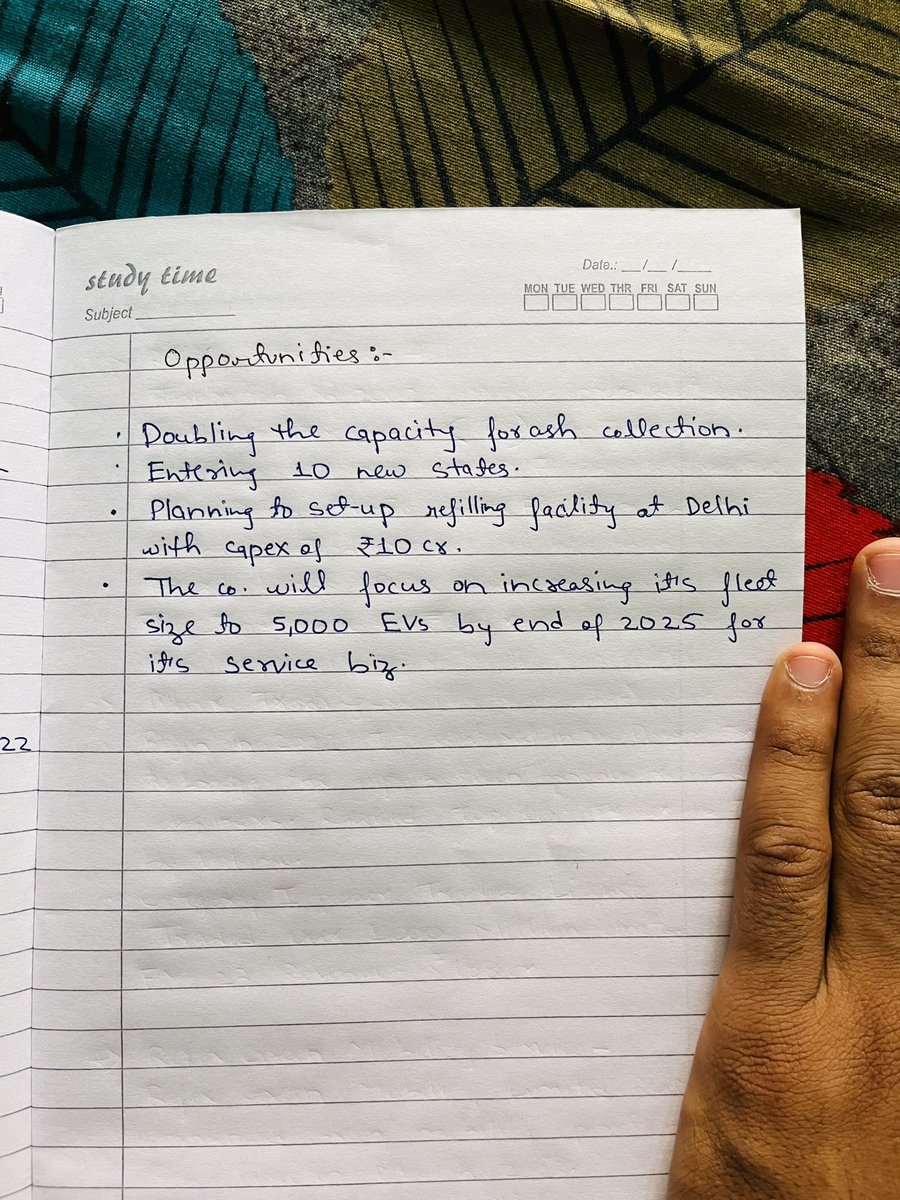 study time
Date.: __/__/____
MON TUE WED THR FRI SAT SUN
Subject
Opportunities :-
• Doubling the capacity for ash collection.
• Entering 10 new states.
• Planning to set-up refilling facility at Delhi
with capex of ₹10 cr.
• The co. will focus on increasing it's fleet
size to 5,000 EVs by end of 2025 for
it's service biz.
22